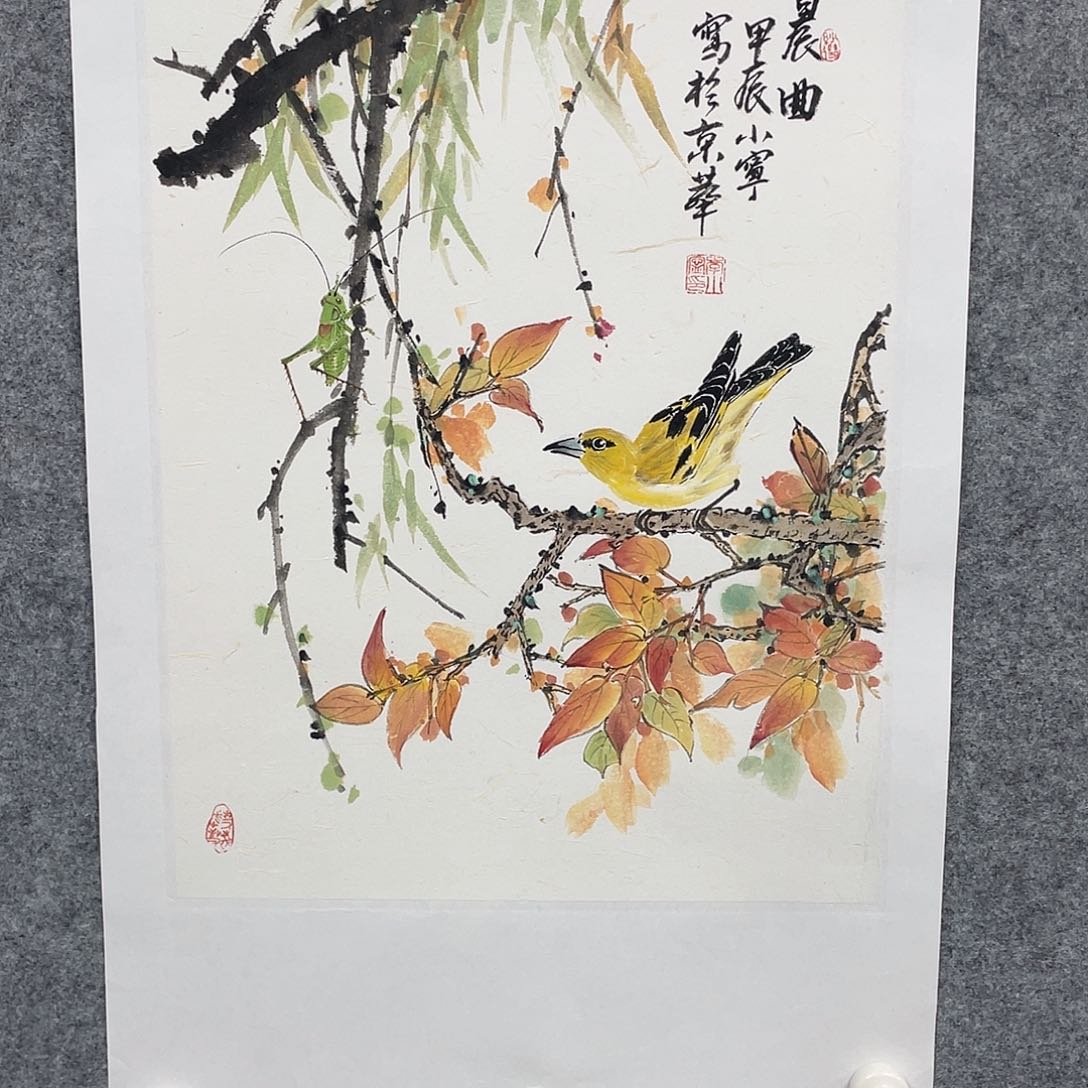 晨曲
甲辰小寧
寫於京華